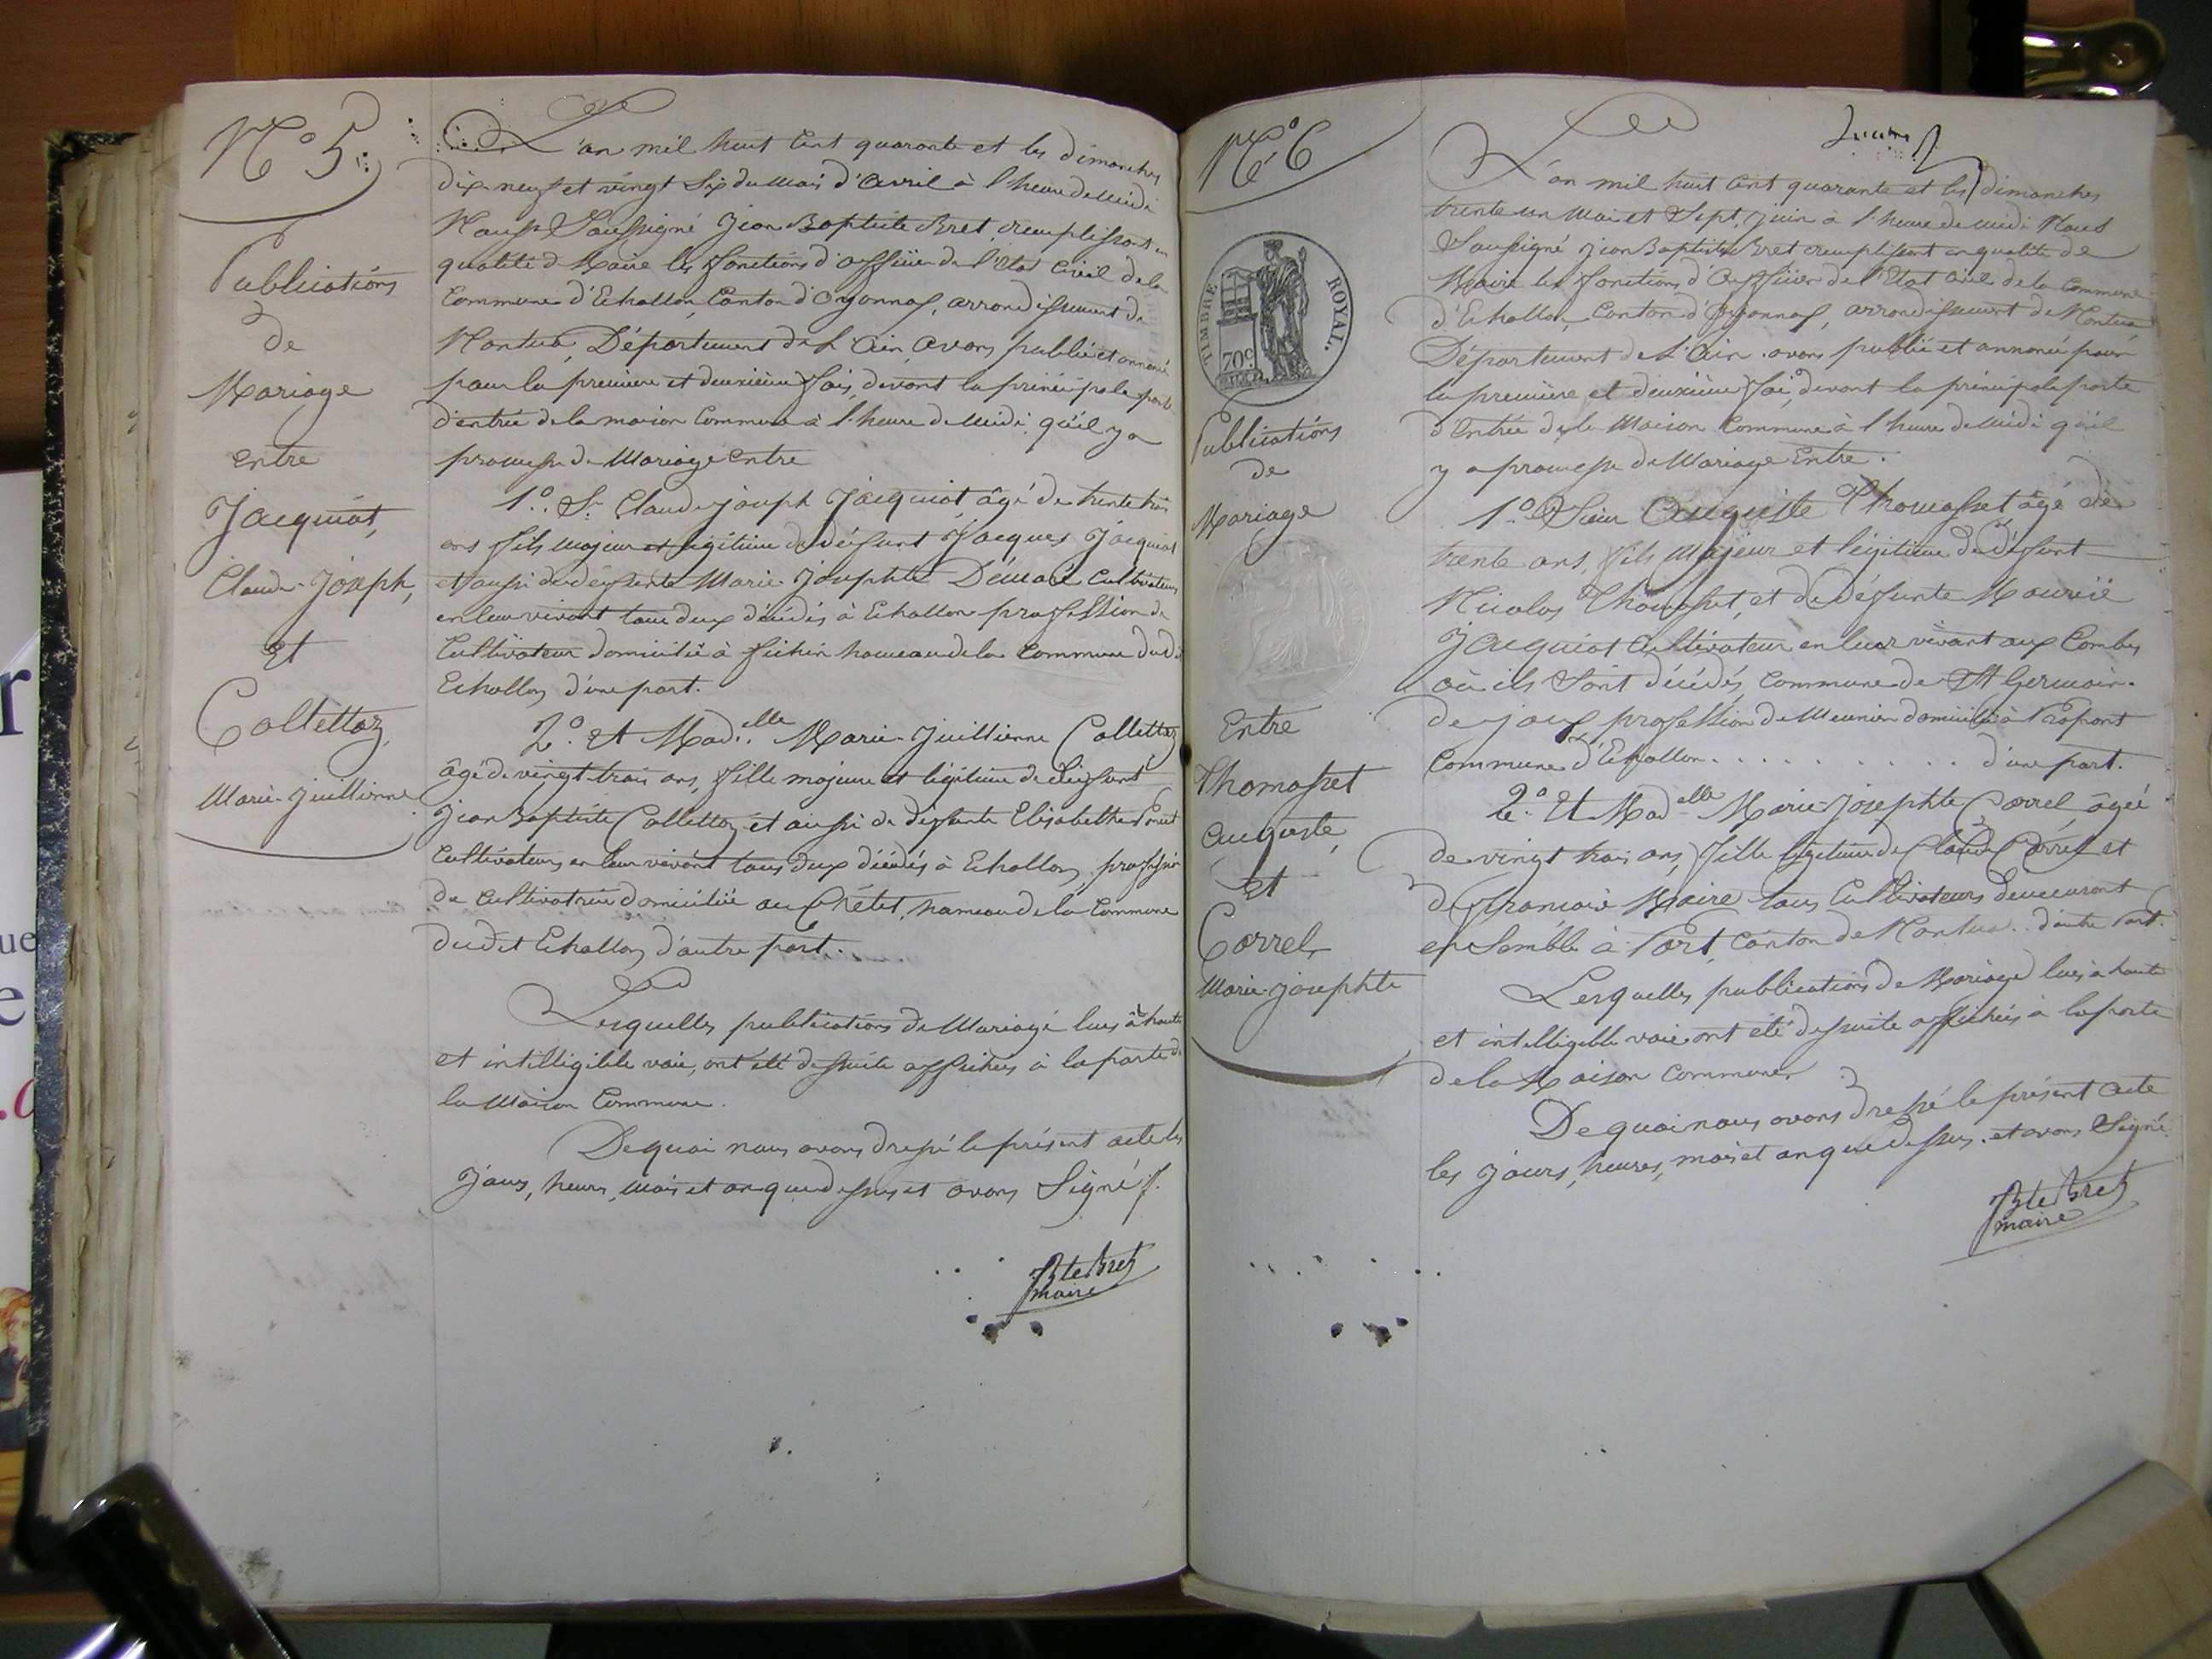 N.o 5.
Publications
de
Mariage
entre
Jacquiot,
Claude-Joseph,
et
Collettaz,
Marie-Juillienne
L'an mil huit cent quarante et les dimanches
dix-neuf et vingt six du mois d'avril à l'heure de midi
Nous Soussigné Jean Baptiste Bret, remplissant en
qualité d Maire les fonctions d'officier de l'état Civil de la
Commune d'Echallon, Canton d'Oyonnax, arrondissement de
Nantua, Département de l'Ain, avons publié et annoncé
pour la premiere et deuxième fois, devant la principale porte
d'entrée de la maison Commune à l'heure de midi, qu'il y a
promesse de Mariage entre
1.o S.r Claude joseph Jacquiot âgé de trente trois
ans fils majeur et légitime de défunt Jacques Jacquiot
et aussi de défunte Marie-Josephte cultivateurs
en leur vivant tous deux décédés à Echallon profession de
Cultivateur domicilié à hameau de la Commune dudit
Echallon d'une part.
2.o et Mad.elle Marie-Juillienne Collettaz
âgé de vingt-trois ans, fille majeure et légitime de défunt
Jean Baptiste Collettaz et aussi de défunte Elisabethe
Cultivateurs en leur vivant tous deux décédés à Echallon, profession
de cultivatrice domiciliée au Crétet, hameau de la Commune
dudit Echallon d'autre part.
Lesquelles publications de Mariage lues à haute
et intelligible voie, ont été desuite affichées à la porte de
la Maison Commune.
De quoi nous avons dressé le présent acte les
Jours, heures, mois et an que dessus et avons Signé
Bte Bret
maire
N.o 6
TIMBRE ROYAL.
70c
Publications
de
Mariage
Entre
Thomasset
Auguste,
et
Correl,
Marie-josephte
L'an mil huit cent quarante et les dimanches
trente un Mai et Sept Juin à l'heure de midi Nous
Soussigné Jean Baptiste Bret remplissant en qualité de
Maire les fonctions d'officier de l'Etat civil de la Commune
d'Echallon, Canton d'Oyonnax, arrondissement de Nantua
Département de l'Ain avons publié et annoncé pour
la première et deuxième fois, devant la principale porte
d'Entrée de la Maison Commune à l'heure de midi qu'il
y a promesse de Mariage Entre.
1.o Sieur Auguste Thomasset âgé de
trente ans, fils Majeur et légitime de défunt
Nicolas Thomasset, et de défunte
Jacquiot cultivateur en leur vivant aux Combes
où ils sont décédés Commune de St Germain-
de-joux profession de Meunier domicilié à
Commune d'Echallon . . . . . . . . . . d'une part.
2.o Et Mad.elle Marie Josephte Correl, âgée
de vingt trois ans, fille légitime de Claude Correl et
de françoise Maire tous Cultivateurs demeurant
ensemble à Port, Canton de Nantua. d'autre Part.
Lesquelles publications de Mariage lues à haute
et intelligible voie ont été desuite affichées à la porte
de la Maison Commune.
De quoi nous avons dressé le présent acte
les jours, heures, mois et an que dessus, et avons Signé.
Bte Bret
maire